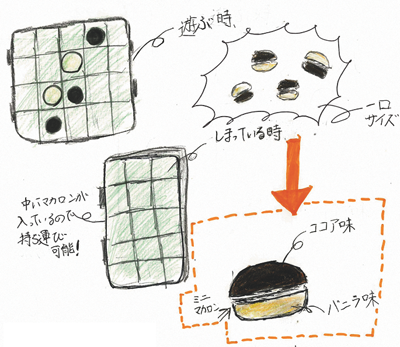 遊ぶ時
一口
サイズ
しまっている時
中にマカロンが
入っているので
持ち運び
可能!
ココア味
ミニ
マカロン
バニラ味